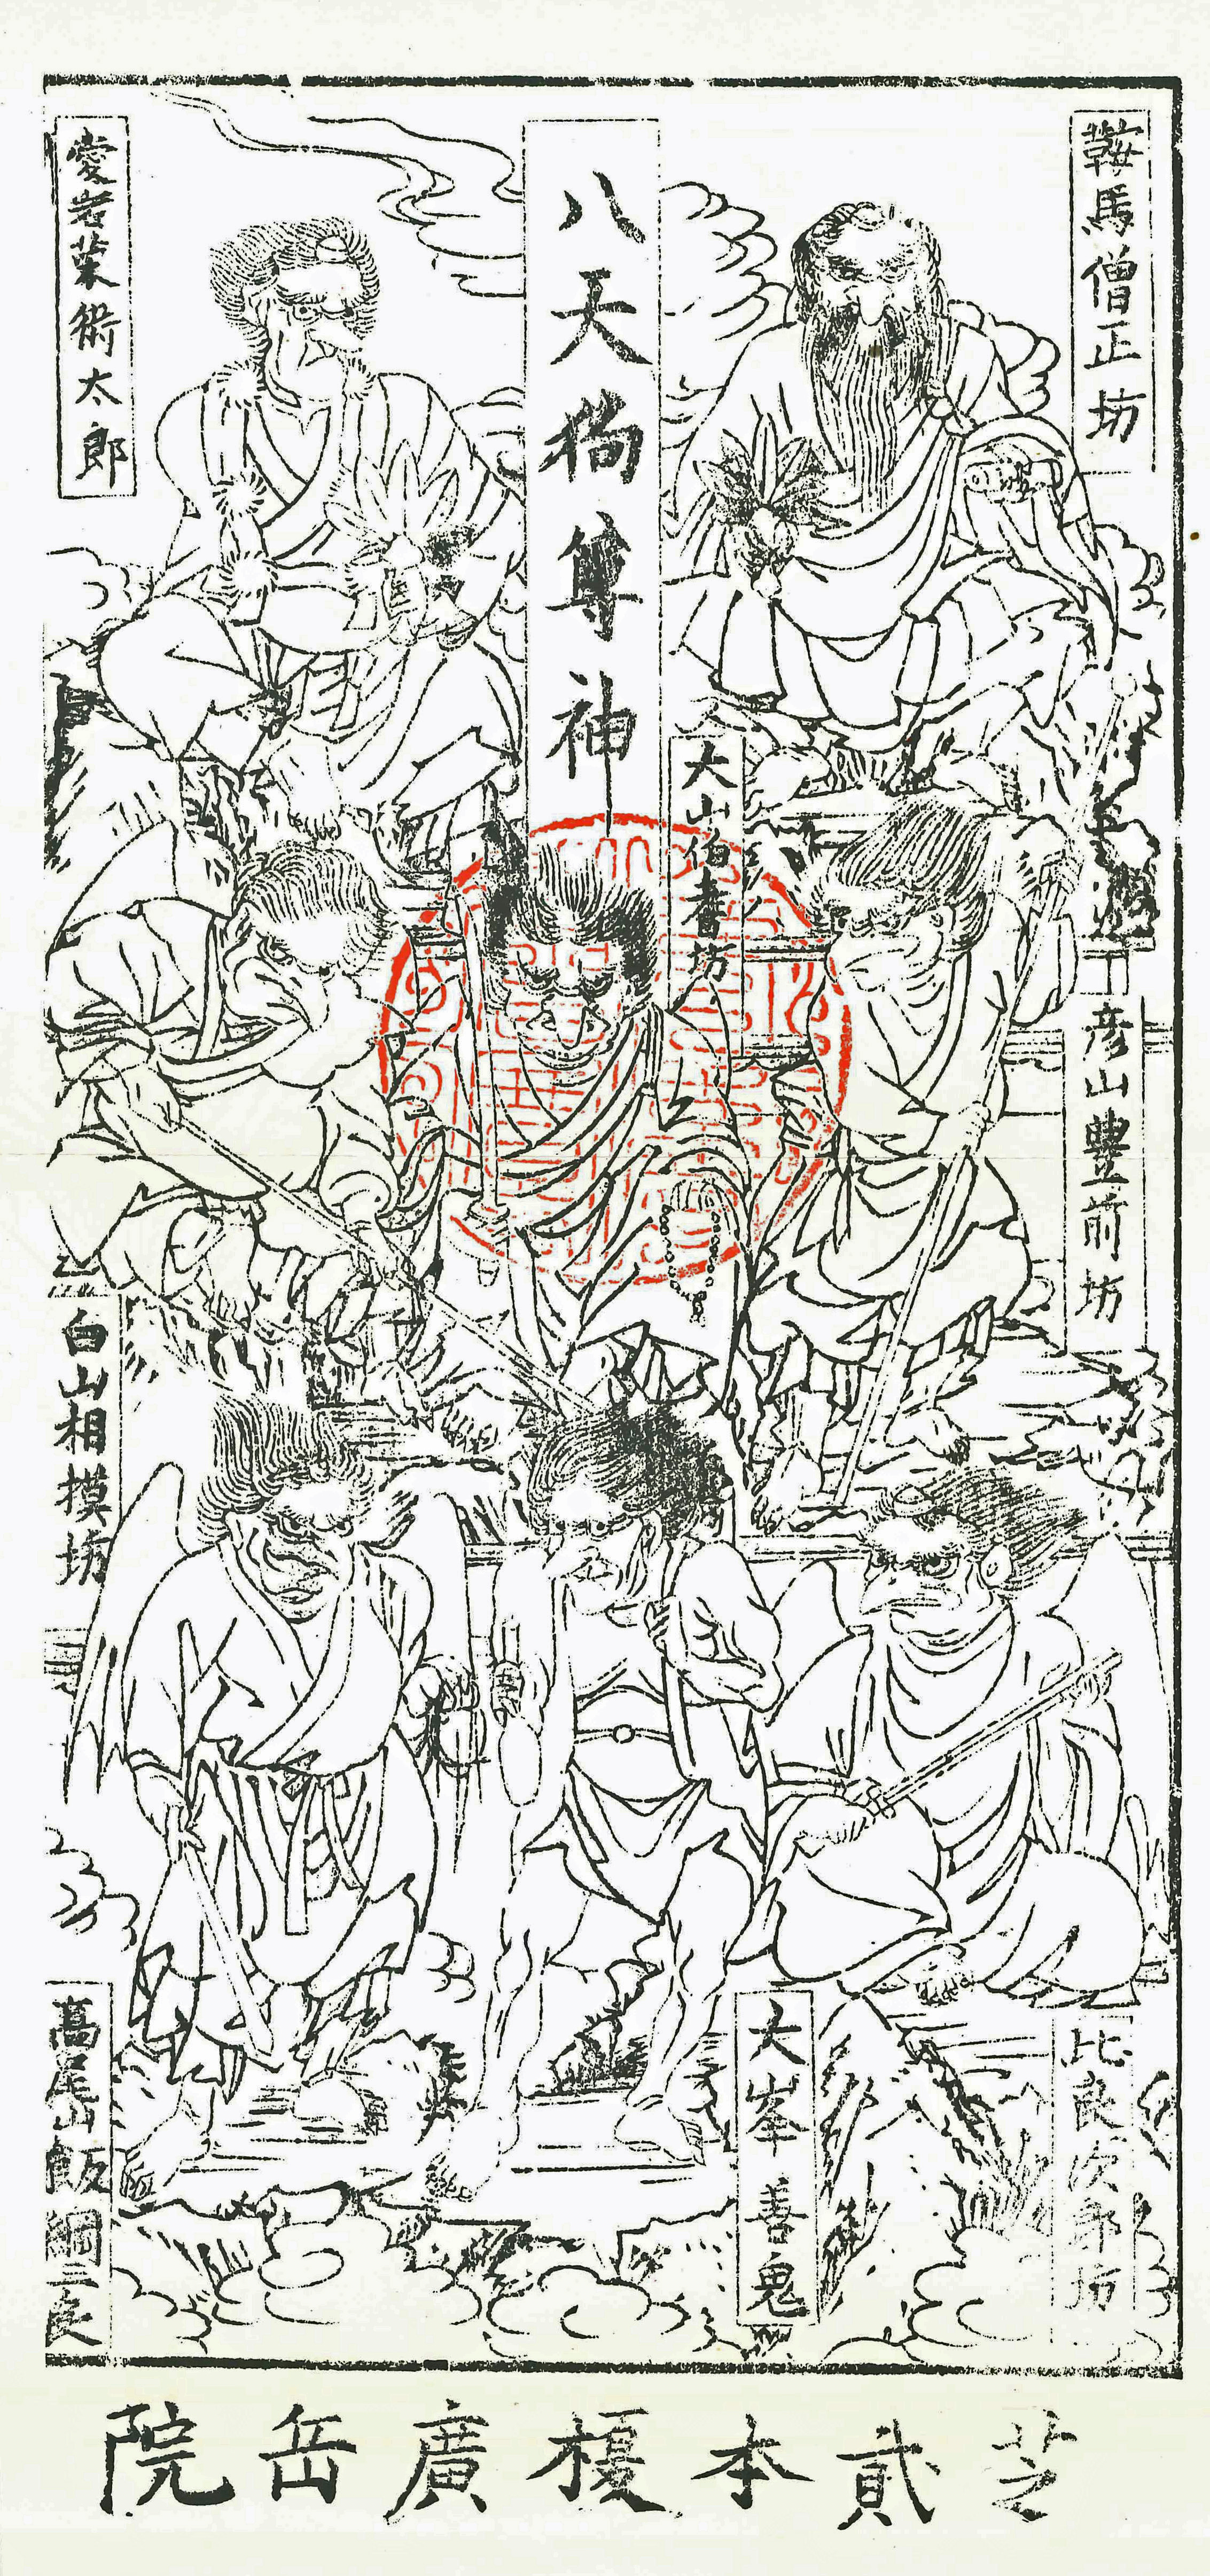 八天狗尊神
鞍馬僧正坊
愛宕榮術太郎
大山伯耆坊
彦山豊前坊
白山相摸坊
大峯善鬼
比良次郎坊
髙尾山飯綱三良
芝貳本榎廣岳院